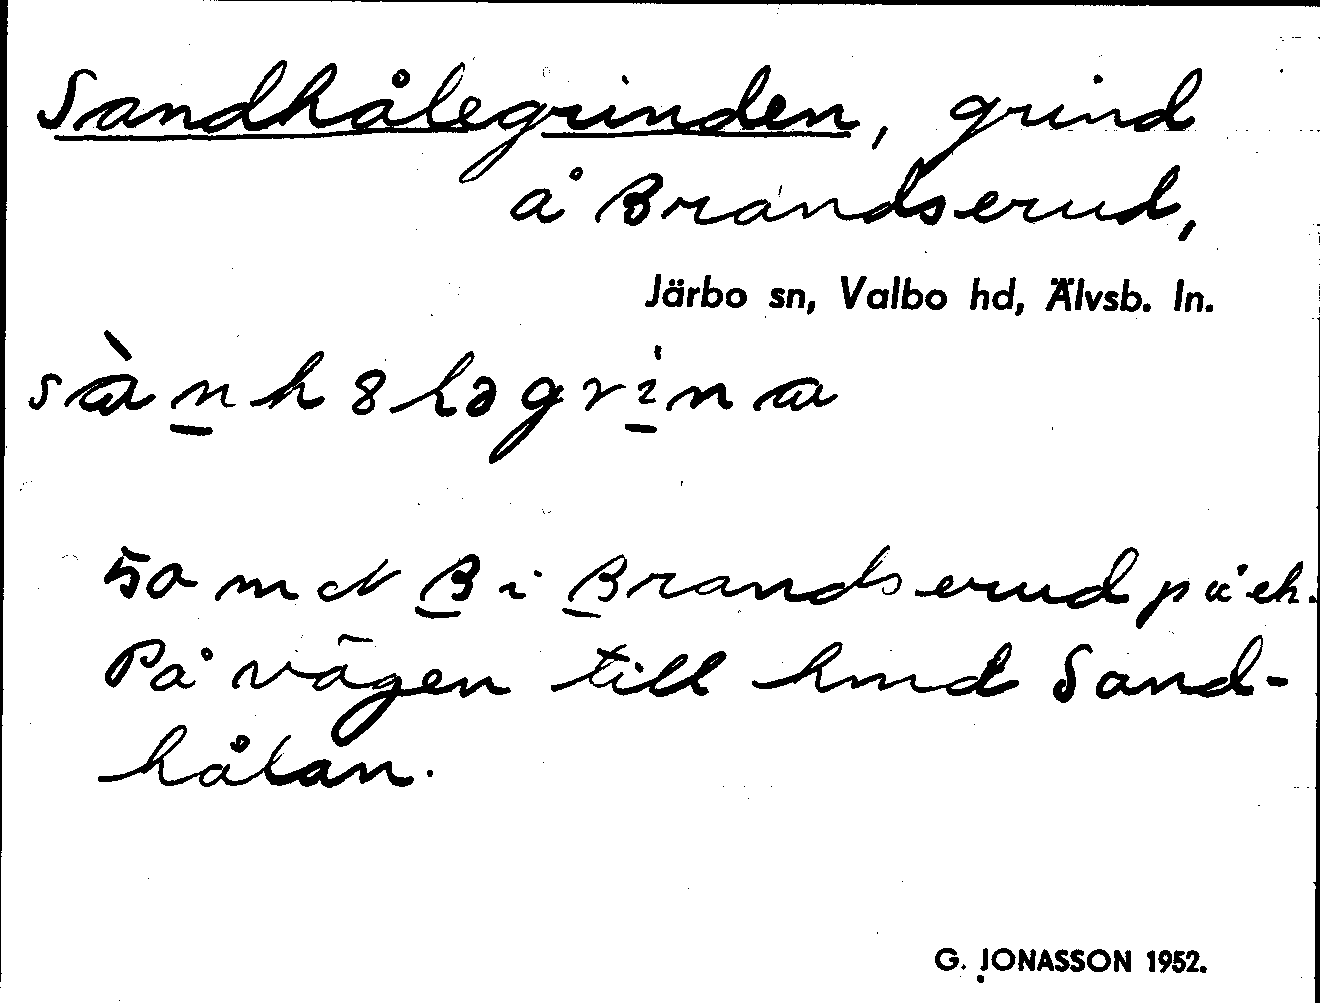 Sandhålegrinden, grind
å Brandserud,
Järbo sn, Valbo hd, Älvsb. ln.
sành8ləgrina
50 m N B i Brandserud på ek.
På vägen till hmd Sand-
hålan.
G. JONASSON 1952.